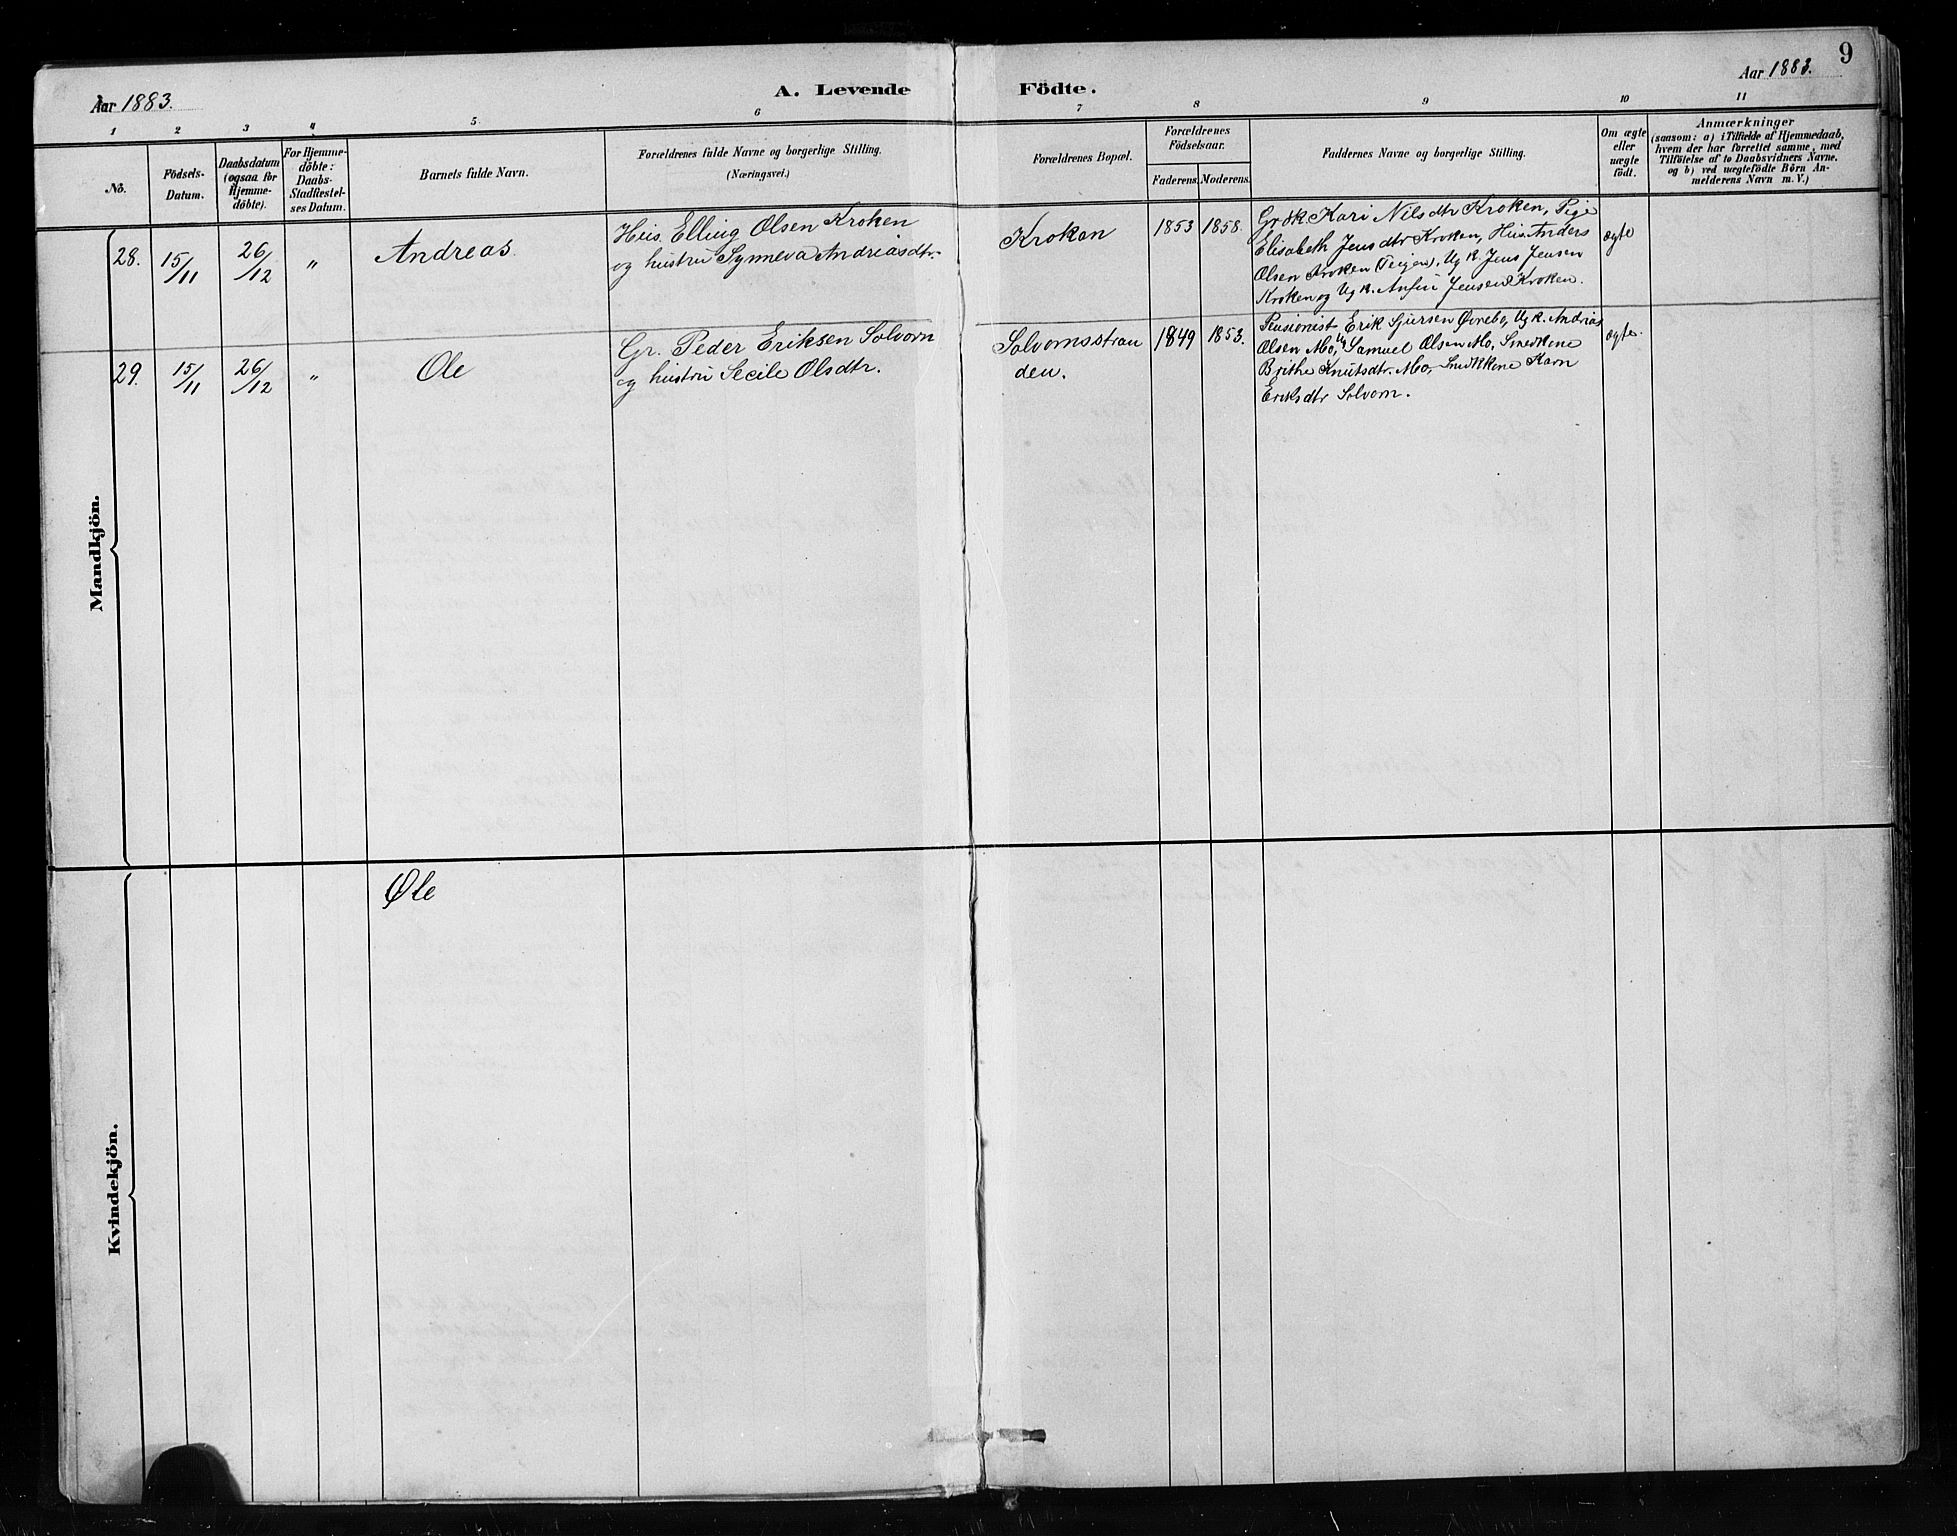 9
Aar 1883. A. Levende Födte. Aar 1883.
1 2 3 4 5 6 7 8 9 10 11
No.
Födsels-Datum.
Daabsdatum (ogsaa for Hjemme-döbte).
For Hjemme-döbte: Daabs-Stadfæstel-ses Datum.
Barnets fulde Navn.
Forældrenes fulde Navne og borgerlige Stilling.
(Næringsvei.)
Forældrenes Bopæl.
Forældrenes Födselsaar.
Faderens. Moderens.
Faddernes Navne og borgerlige Stilling.
Om ægte eller uægte födt.
Anmærkninger
(saasom: a) i Tilfælde af Hjemmedaab,
hvem der har forrettet samme, med
Tilföielse af to Daabsvidners Navne.
og b) ved uægtefödte Börn An-
melderens Navn m. V.)
Mandkjön.
28. 15/11 26/12 " Andreas.
Hus. Elling Olsen Kroken
og hustru Synneva Andriasdtr.
Kroken 1853 1858.
Grdk. Kari Nilsdtr Kroken, Pige
Elisabeth Jensdtr Kroken, Hus. Anders
Olsen Kroken (Teigen), Ug k. Jens Jensen
Kroken og Ug k. Anfin Jensen Kroken.
ægte
29. 15/11 26/12 " Ole
Gr. Peder Eriksen Solvorn
og hustru Secile Olsdtr.
Solvornsstran
den.
1849 1853.
Pensionist Erik Sjursen Øvrebo, Ug k. Andrias
Olsen Mo, Ug Samuel Olsen Mo, Smedkone
Brithe Knutsdtr. Mo, Karn
Eriksdtr Solvorn.
ægte.
Kvindekjön.
Ole